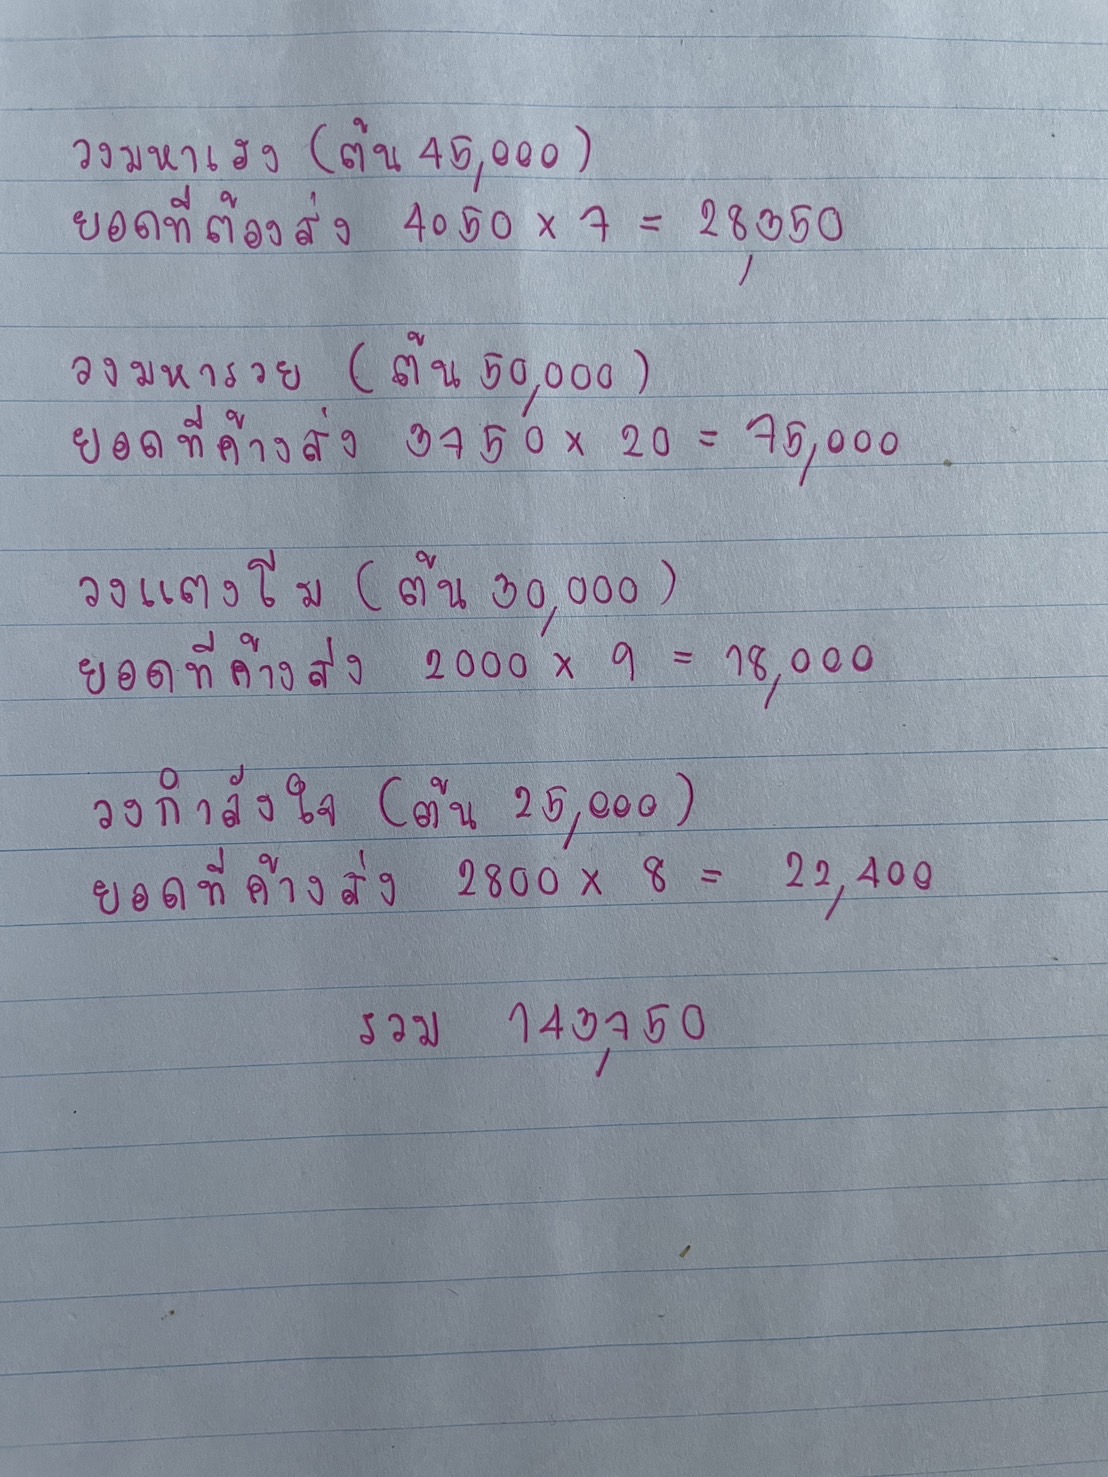 วงมหาเฮง (ต้น 45,000)
ยอดที่ต้องส่ง 4050 x 7 = 28,350
วงมหารวย (ต้น 50,000)
ยอดที่ค้างส่ง 3750 x 20 = 75,000
วงแตงโม (ต้น 30,000)
ยอดที่ค้างส่ง 2000 x 9 = 18,000
วงกำลังใจ (ต้น 25,000)
ยอดที่ค้างส่ง 2800 x 8 = 22,400
รวม 143,750